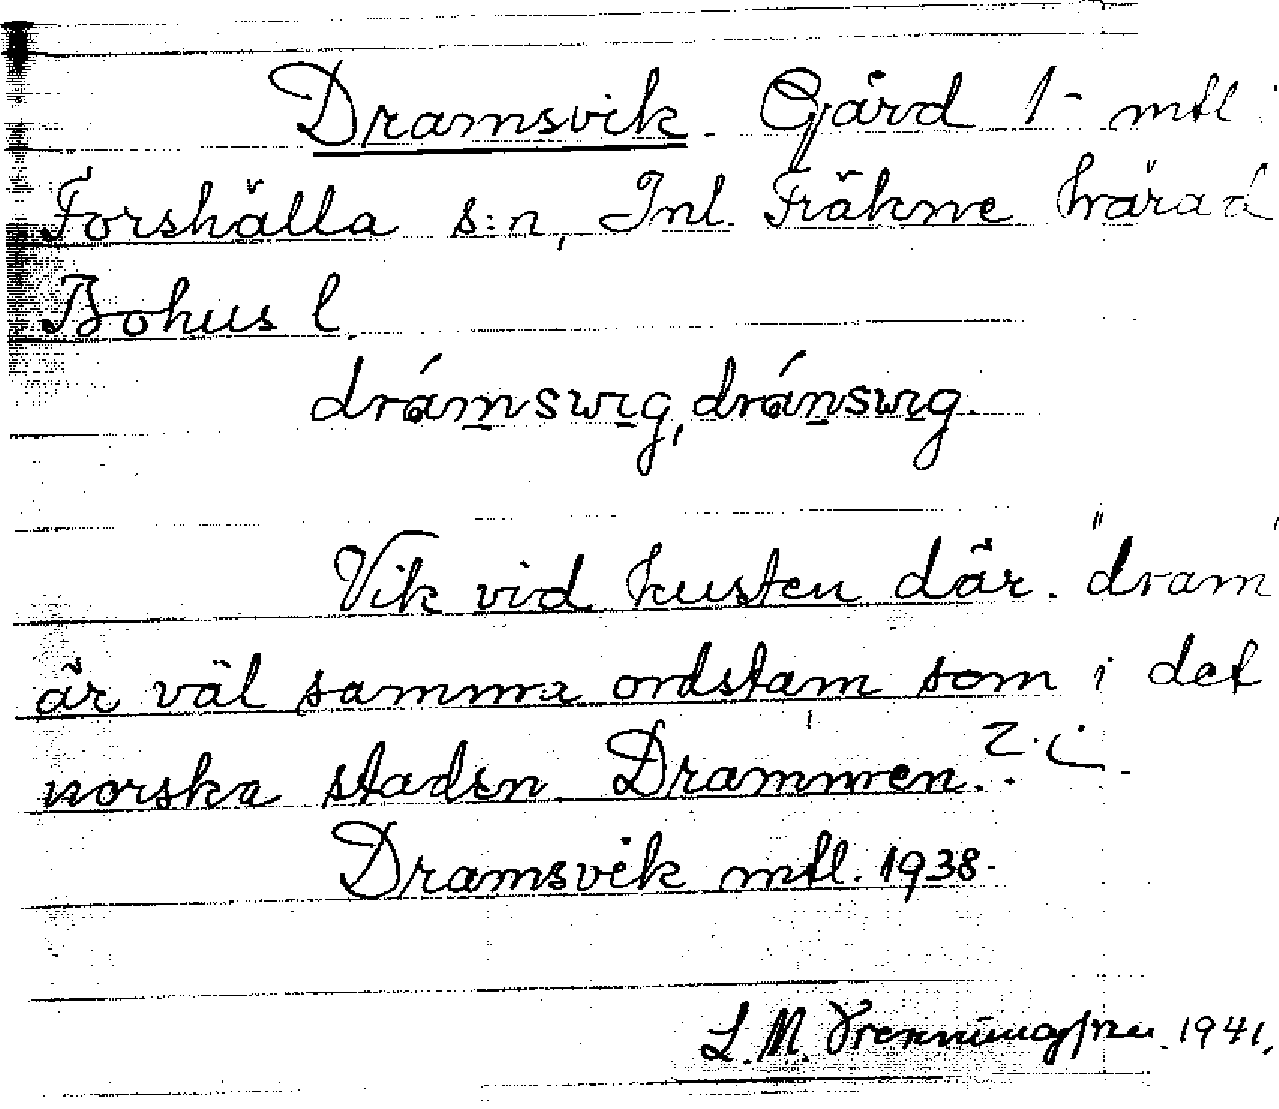 Dramsvik. Gård 1 - mtl
Forshälla s:n, Inl. Fräkne härad
Bohus l.
drámswıg, dránswıg.
Vik vid kusten där. "dram"
är väl samma ordstam som i det
norska staden Drammen.?
Dramsvik mtl. 1938.
L. M. 1941.